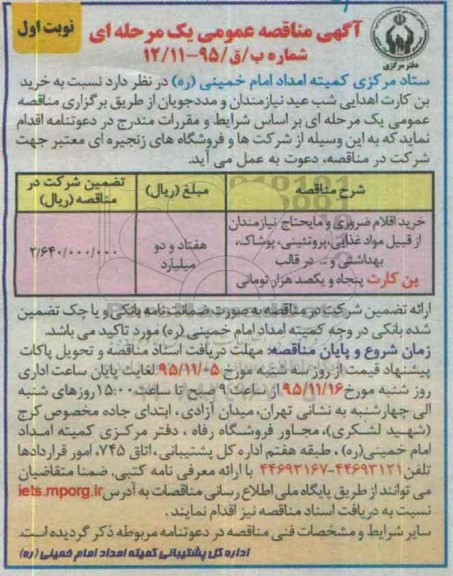 نوبت اول
آگهی مناقصه عمومی یک مرحله ای
شماره ب/ق/۹۵-۱۲/۱۱
دفتر مرکزی
ستاد مرکزی کمیته امداد امام خمینی (ره) در نظر دارد نسبت به خرید
بن کارت اهدایی شب عید نیازمندان و مددجویان از طریق برگزاری مناقصه
عمومی یک مرحله ای بر اساس شرایط و مقررات مندرج در دعوتنامه اقدام
نماید که به این وسیله از شرکت ها و فروشگاه های زنجیره ای معتبر جهت
شرکت در مناقصه، دعوت به عمل می آید.
شرح مناقصه
مبلغ (ریال)
تضمین شرکت در
مناقصه (ریال)
خرید اقلام ضروری و مایحتاج نیازمندان
از قبیل مواد غذایی،پروتئینی، پوشاک،
بهداشتی و ... در قالب
بن کارت پنجاه و یکصد هزار تومانی
هفتاد و دو
میلیارد
۲/۶۴۰/۰۰۰/۰۰۰
ارائه تضمین شرکت در مناقصه به صورت ضمانت نامه بانکی و یا چک تضمین
شده بانکی در وجه کمیته امداد امام خمینی (ره) مورد تاکید می باشد.
زمان شروع و پایان مناقصه: مهلت دریافت اسناد مناقصه و تحویل پاکات
پیشنهاد قیمت از روز سه شنبه مورخ ۹۵/۱۱/۰۵ لغایت پایان ساعت اداری
روز شنبه مورخ ۹۵/۱۱/۱۶ از ساعت ۹ صبح تا ساعت ۱۵:۰۰ روزهای شنبه
الی چهارشنبه به نشانی تهران، میدان آزادی ، ابتدای جاده مخصوص کرج
(شهید لشکری)، مجاور فروشگاه رفاه ، دفتر مرکزی کمیته امداد
امام خمینی(ره) ، طبقه هفتم اداره کل پشتیبانی ،اتاق ۷۴۵، امور قراردادها
تلفن ۴۴۶۹۳۱۲۱-۴۴۶۹۳۱۶۷ با ارائه معرفی نامه کتبی، ضمنا متقاضیان
می توانند از طریق پایگاه ملی اطلاع رسانی مناقصات به آدرس iets.mporg.ir
نسبت به دریافت اسناد مناقصه نیز اقدام نمایند .
سایر شرایط و مشخصات فنی مناقصه در دعوتنامه مربوطه ذکر گردیده است.
اداره کل پشتیبانی کمیته امداد امام خمینی (ره)